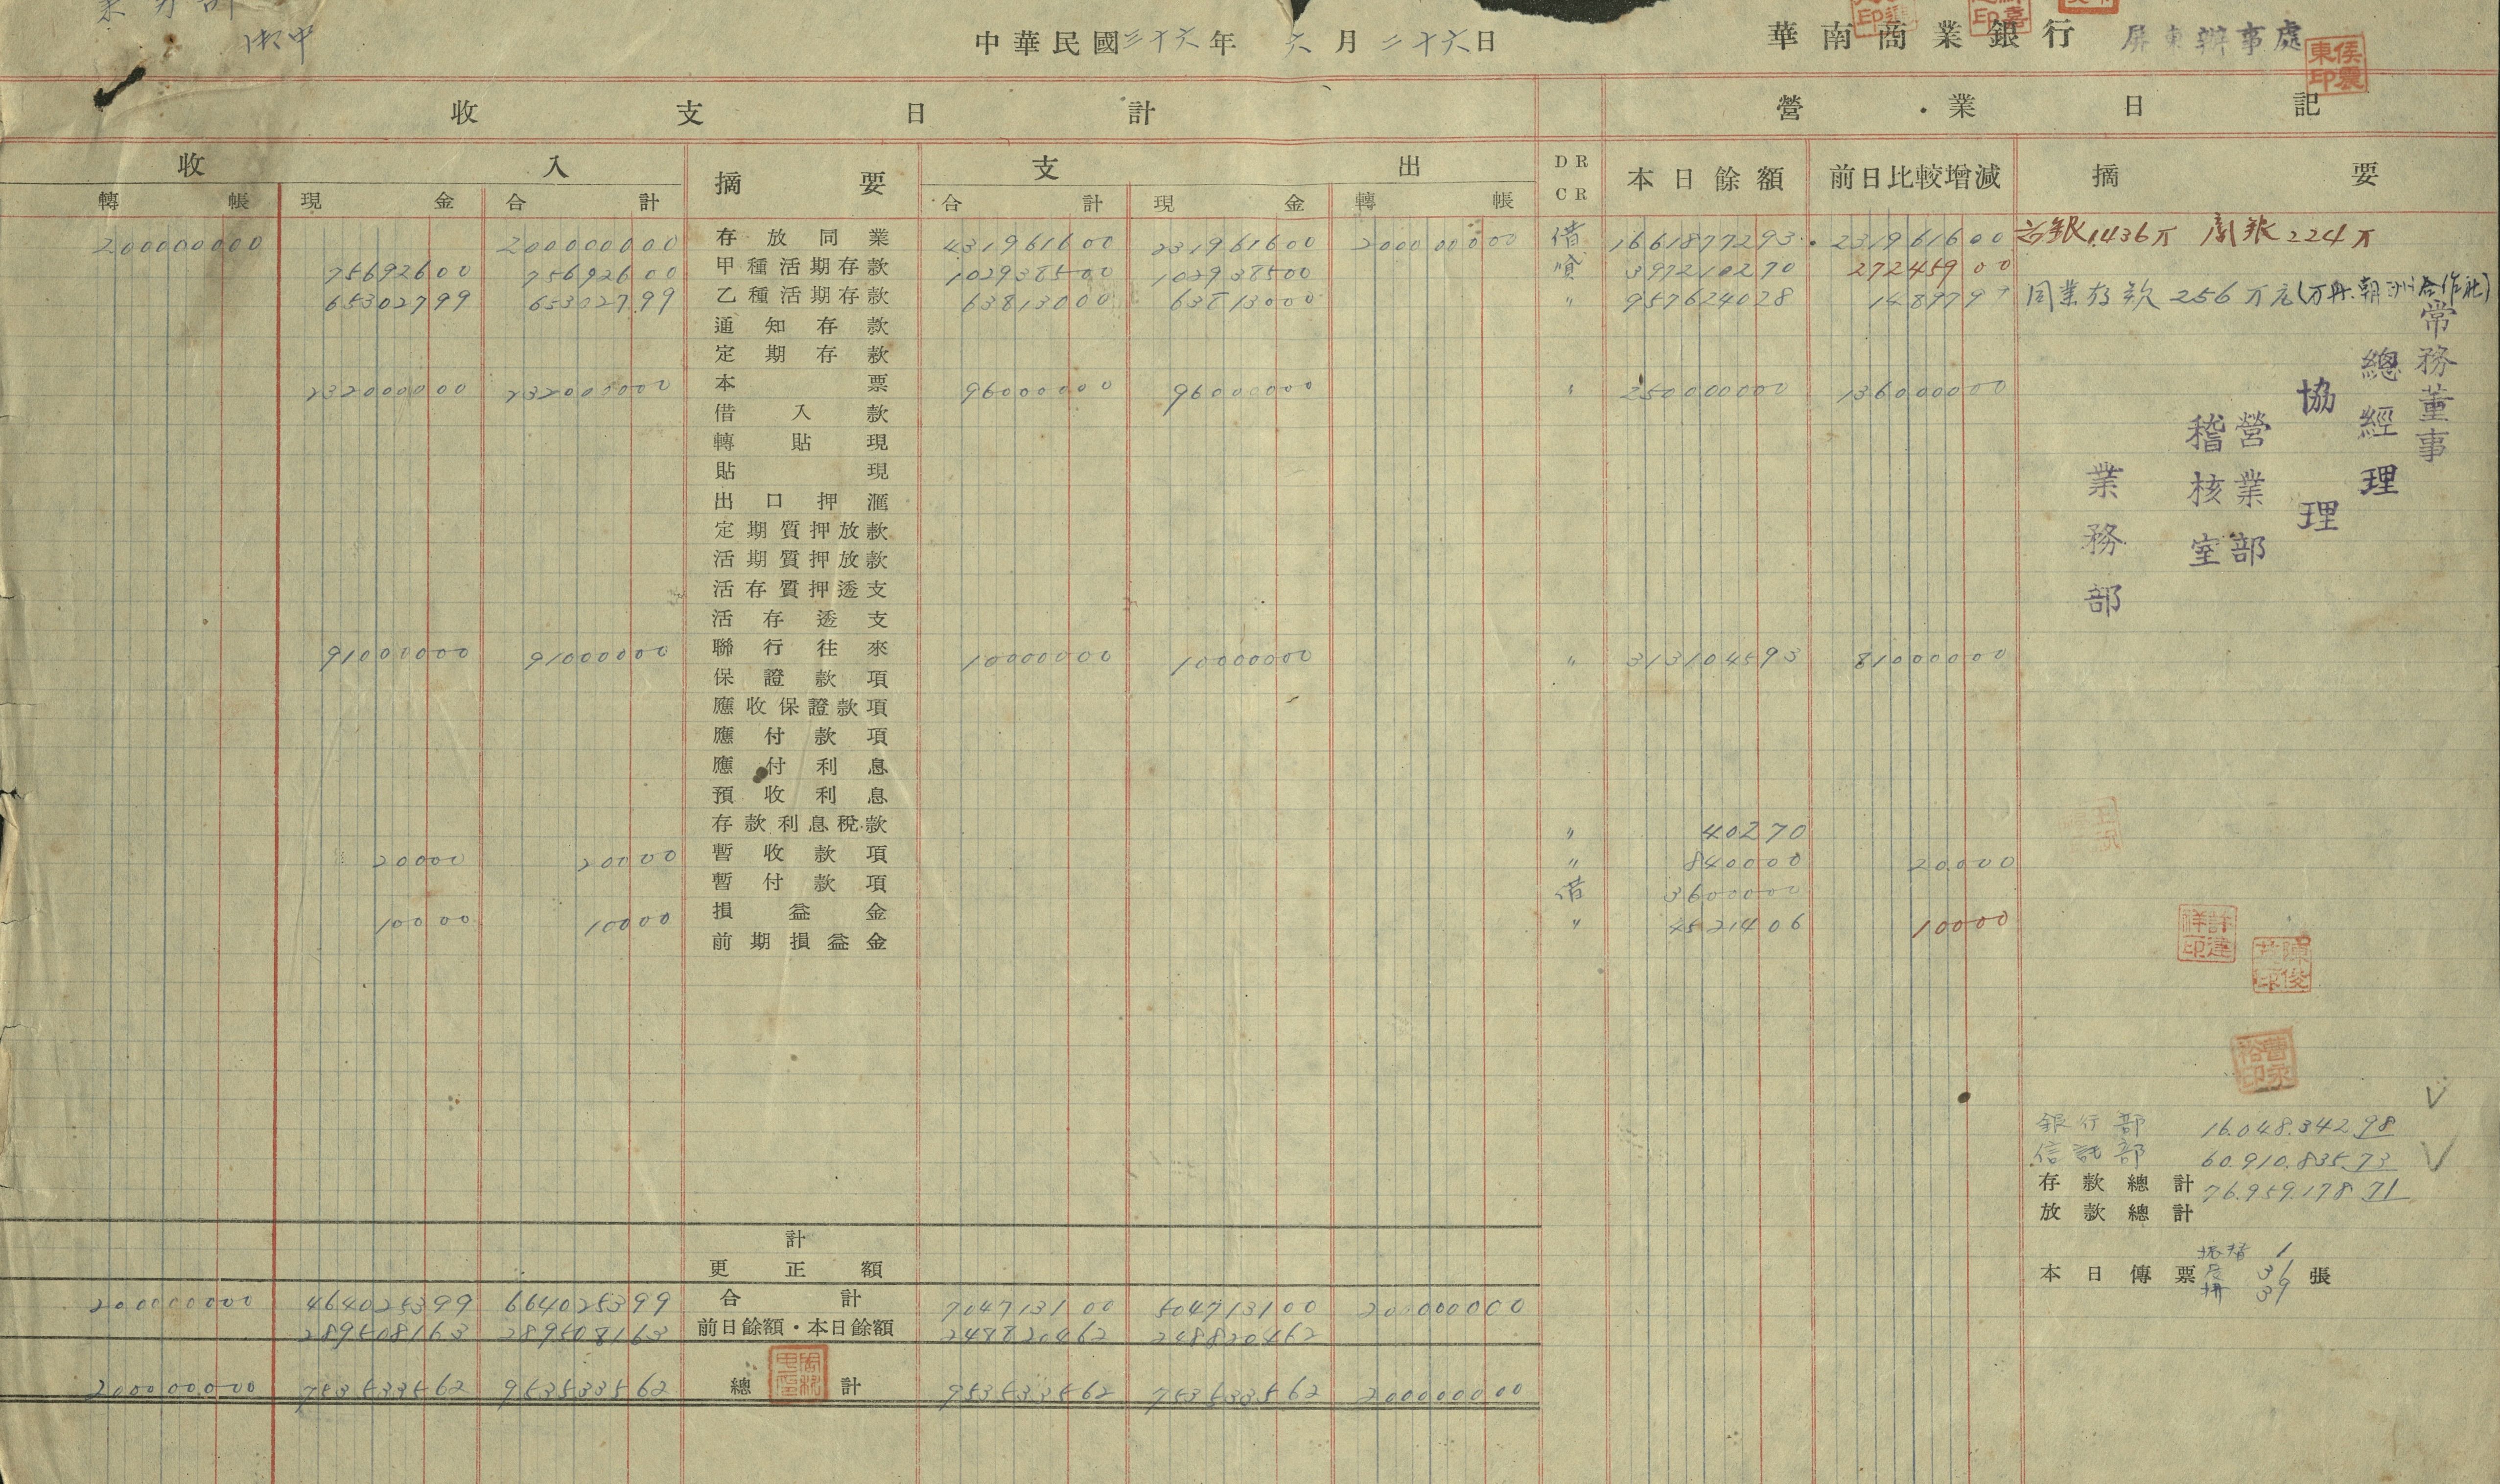 中華民國三十六年 六月二十六日 華南商業銀行 屏東辦事處
侯震東印
收支日計 營業日記
收入 摘要 支出 DR CR 本日餘額 前日比較增減 摘要
轉帳 現金 合計 合計 現金 轉帳
200000000 200000000 存放同業 431961600 231961600 200000000 借 1661877293 231961600 台銀1,436万 商銀224万
75692600 75692600 甲種活期存款 102938500 102938500 貸 397210270 27245900
65302799 65302799 乙種活期存款 63813000 63813000 〃 957624028 1489799 同業存款 256万元(万丹、朝州合作社)
通知存款
定期存款
232000000 232000000 本票 96000000 96000000 〃 250000000 136000000
借入款
轉貼現
貼現
出口押滙
定期質押放款
活期質押放款
活存質押透支
活存透支
91000000 91000000 聯行往來 10000000 10000000 〃 313104593 81000000
保證款項
應收保證款項
應付款項
應付利息
預收利息
存款利息稅款 〃 40270
20000 20000 暫收款項 〃 840000 20000
暫付款項 借 3600000
10000 10000 損益金 〃 4521406 10000
前期損益金
常務董事
總經理
協理
營業部
稽核室
業務部
許建祥印
銀行部 16,048,342.98
信託部 60,910,835.73
存款總計 76,959,178.71
放款總計
計
更正額
本日傳票 振替 1 31 39 張
200000000 464025399 664025399 合計 704713100 504713100 200000000
289508163 289508163 前日餘額・本日餘額 248820462 248820462
200000000 753533562 953533562 總計 953533562 753533562 200000000